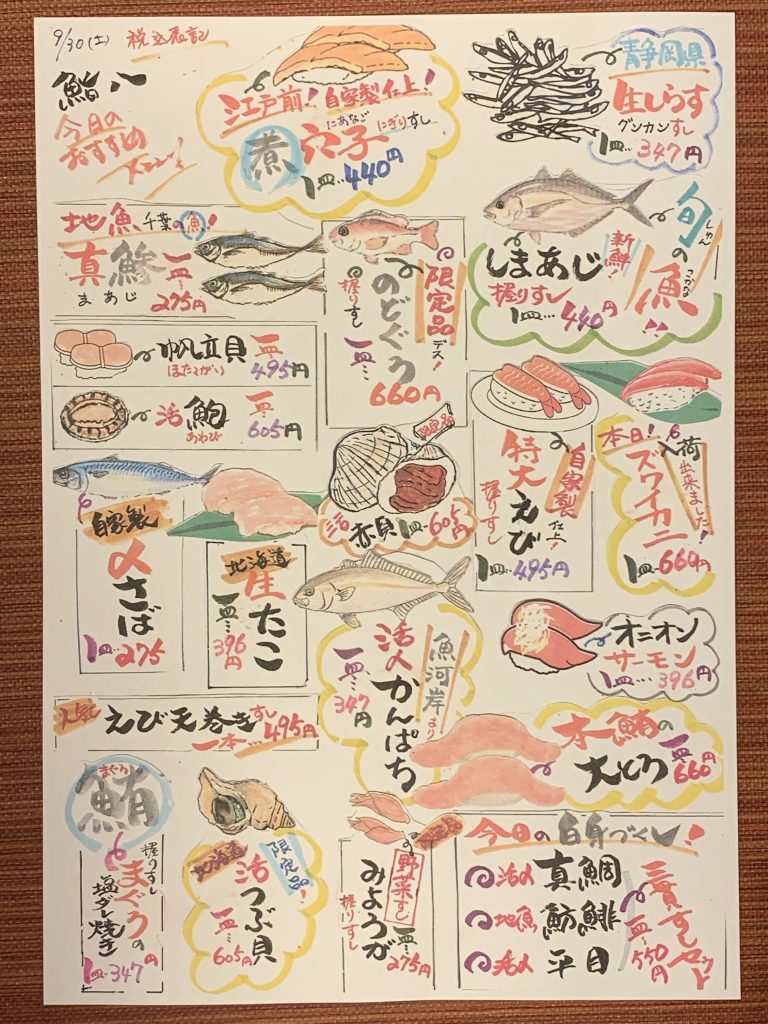 9/30(土) 税込表記
鮨八
今日の
おすすめ
メニュー!
江戸前! 自家製仕上!
にあなご にぎりすし
煮穴子
1皿…440円
静岡県
生しらす
グンカンすし
1皿…347円
地魚 千葉の魚!
真鯵 一皿…
まあじ 275円
限定品デス!
のどぐろ
握りすし
一皿…
660円
しゅん さかな
旬の魚!!
新鮮!
しまあじ
握りすし
1皿…440円
帆立貝 一皿
ほたてがい 495円
活鮑 一皿
あわび 605円
限定品
活赤貝 1皿…605円
自家製仕上!
特大えび
握りすし
1皿…495円
本日!
入荷出来ました!
ズワイカニ
1皿…660円
自家製
〆さば
1皿…275
北海道
生たこ
一皿…
396円
魚河岸より
活〆かんぱち
一皿…
347円
オニオン
サーモン
1皿…396円
人気 えび天巻きすし
一本…495円
本鮪の
大とろ
一皿…
660円
まぐろ
鮪
握りすし
まぐろの
塩ダレ焼き
1皿…347円
北海道
限定品!
活つぶ貝
一皿…
605円
限定品
野菜すし
みょうが
握りすし
一皿…
275円
今日の白身づくし!
活〆 真鯛
地魚 魴鮄
活〆 平目
三貫すしセット
一皿…550円